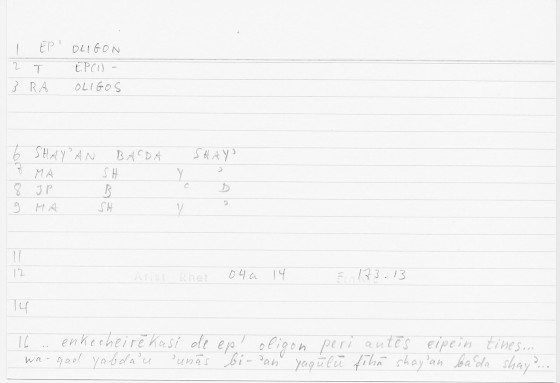 1 EP' OLIGON
2 T EP(I) -
3 RA OLIGOS
6 SHAYʾAN BAʿDA SHAYʾ
7 MA SH Y ʾ
8 JP B ʿ D
9 MA SH Y ʾ
11
12 Arist. Rhet 04a 14 173.13
14
16 .. enkecheirēkasi de ep' oligon peri autēs eipein tines...
wa-qad yabdaʾu ʾunās bi-ʾan yaqūlū fīhā shayʾan baʿda shayʾ...